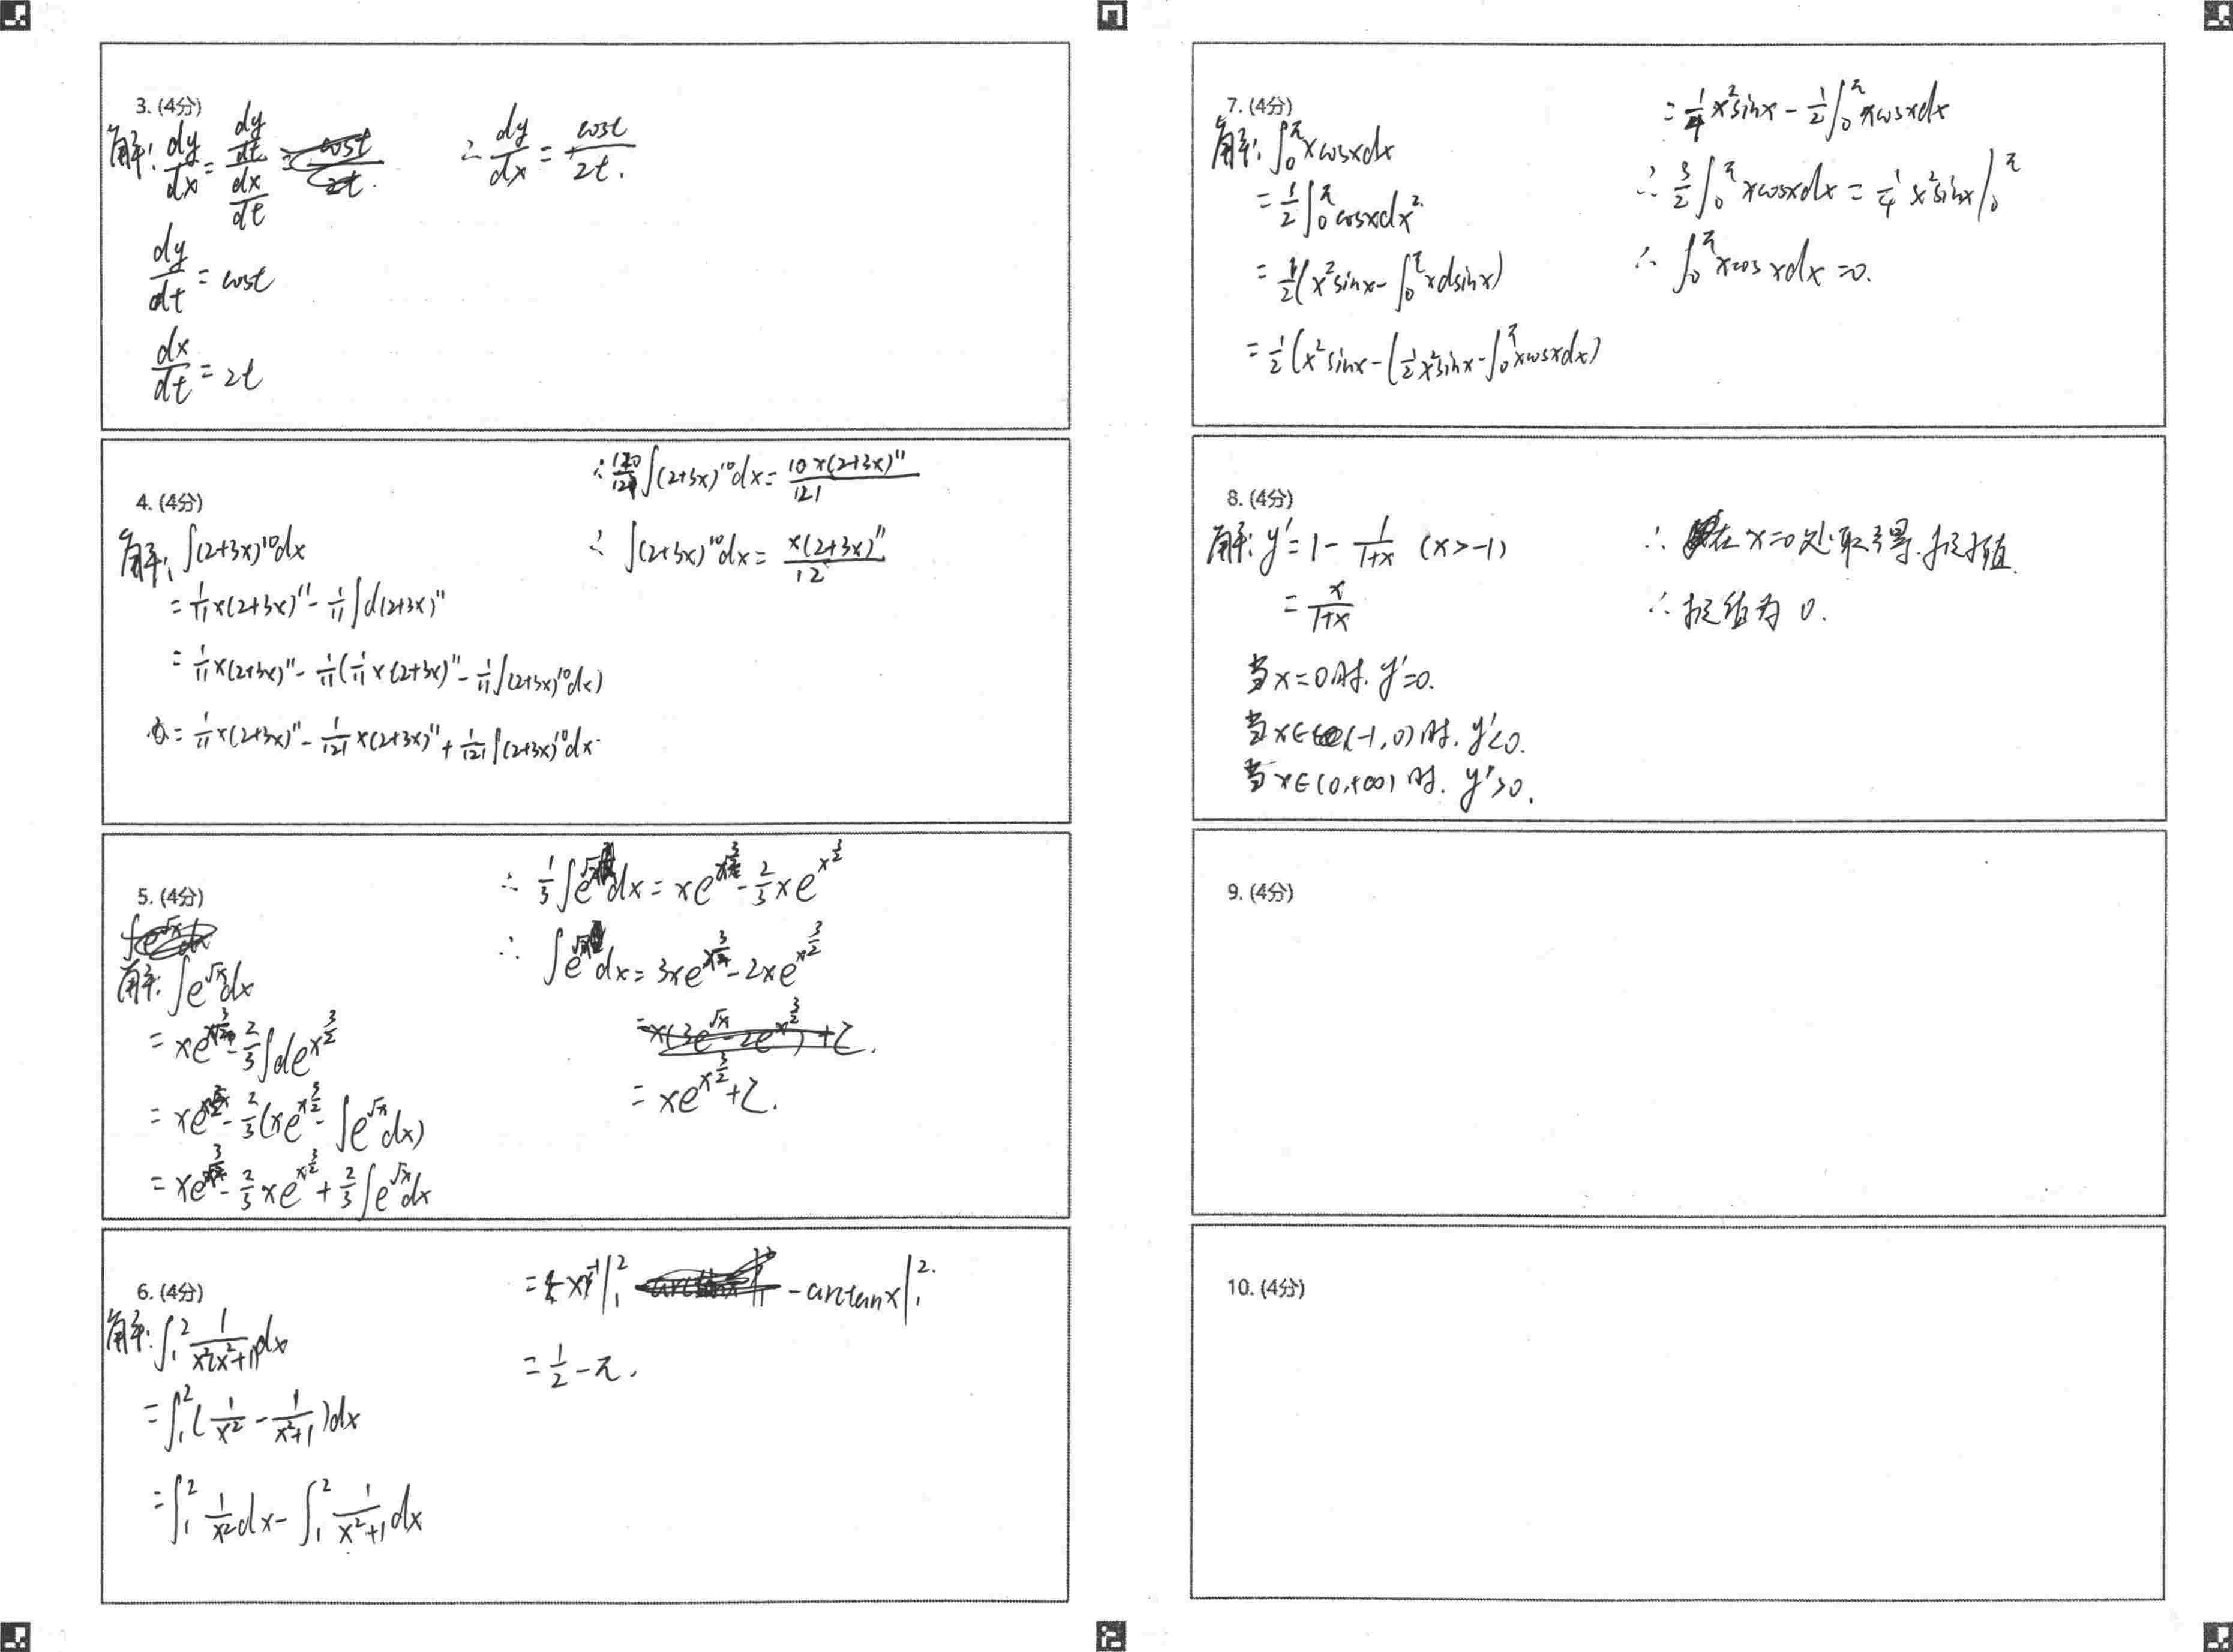 3. (4分)
解: dy/dx = (dy/dt)/(dx/dt) ∴ dy/dx = cost/2t.
dy/dt = cost
dx/dt = 2t
4. (4分)
解: ∫(2+3x)^10 dx
= 1/11 x(2+3x)^11 - 1/11 ∫d(2+3x)^11
= 1/11 x(2+3x)^11 - 1/11(1/11 x(2+3x)^11 - 1/11 ∫(2+3x)^10 dx)
= 1/11 x(2+3x)^11 - 1/121 x(2+3x)^11 + 1/121 ∫(2+3x)^10 dx.
∴ 120/121 ∫(2+3x)^10 dx = 10x(2+3x)^11/121
∴ ∫(2+3x)^10 dx = x(2+3x)^11/12
5. (4分)
解: ∫e^√x dx
= xe^x^(3/2) - 2/3 ∫de^x^(3/2)
= xe^x^(3/2) - 2/3(xe^x^(3/2) - ∫e^√x dx)
= xe^x^(3/2) - 2/3 xe^x^(3/2) + 2/3 ∫e^√x dx
∴ 1/3 ∫e^√x dx = xe^x^(3/2) - 2/3 xe^x^(3/2)
∴ ∫e^√x dx = 3xe^x^(3/2) - 2xe^x^(3/2)
= x(3e^√x - 2e^x^(3/2)) + C.
= xe^x^(3/2) + C.
6. (4分)
解: ∫₁² 1/(x²(x²+1)) dx
= ∫₁² (1/x² - 1/(x²+1)) dx
= ∫₁² 1/x² dx - ∫₁² 1/(x²+1) dx
= x^-1 |₁² - arctanx |₁².
= 1/2 - π.
7. (4分)
解: ∫₀^π xcosxdx
= 1/2 ∫₀^π cosxdx²
= 1/2(x²sinx - ∫₀^π xdsinx)
= 1/2(x²sinx - (1/2 x²sinx - ∫₀^π xcosxdx)
= 1/4 x²sinx - 1/2 ∫₀^π xcosxdx
∴ 3/2 ∫₀^π xcosxdx = 1/4 x²sinx |₀^π
∴ ∫₀^π xcosxdx = 0.
8. (4分)
解: y' = 1 - 1/(1+x) (x>-1)
= x/(1+x)
当x=0时. y'=0.
当x∈(-1,0)时. y'<0.
当x∈(0,+∞)时. y'>0.
∴ 在x=0处取得极值.
∴ 极值为 0.
9. (4分)
10. (4分)